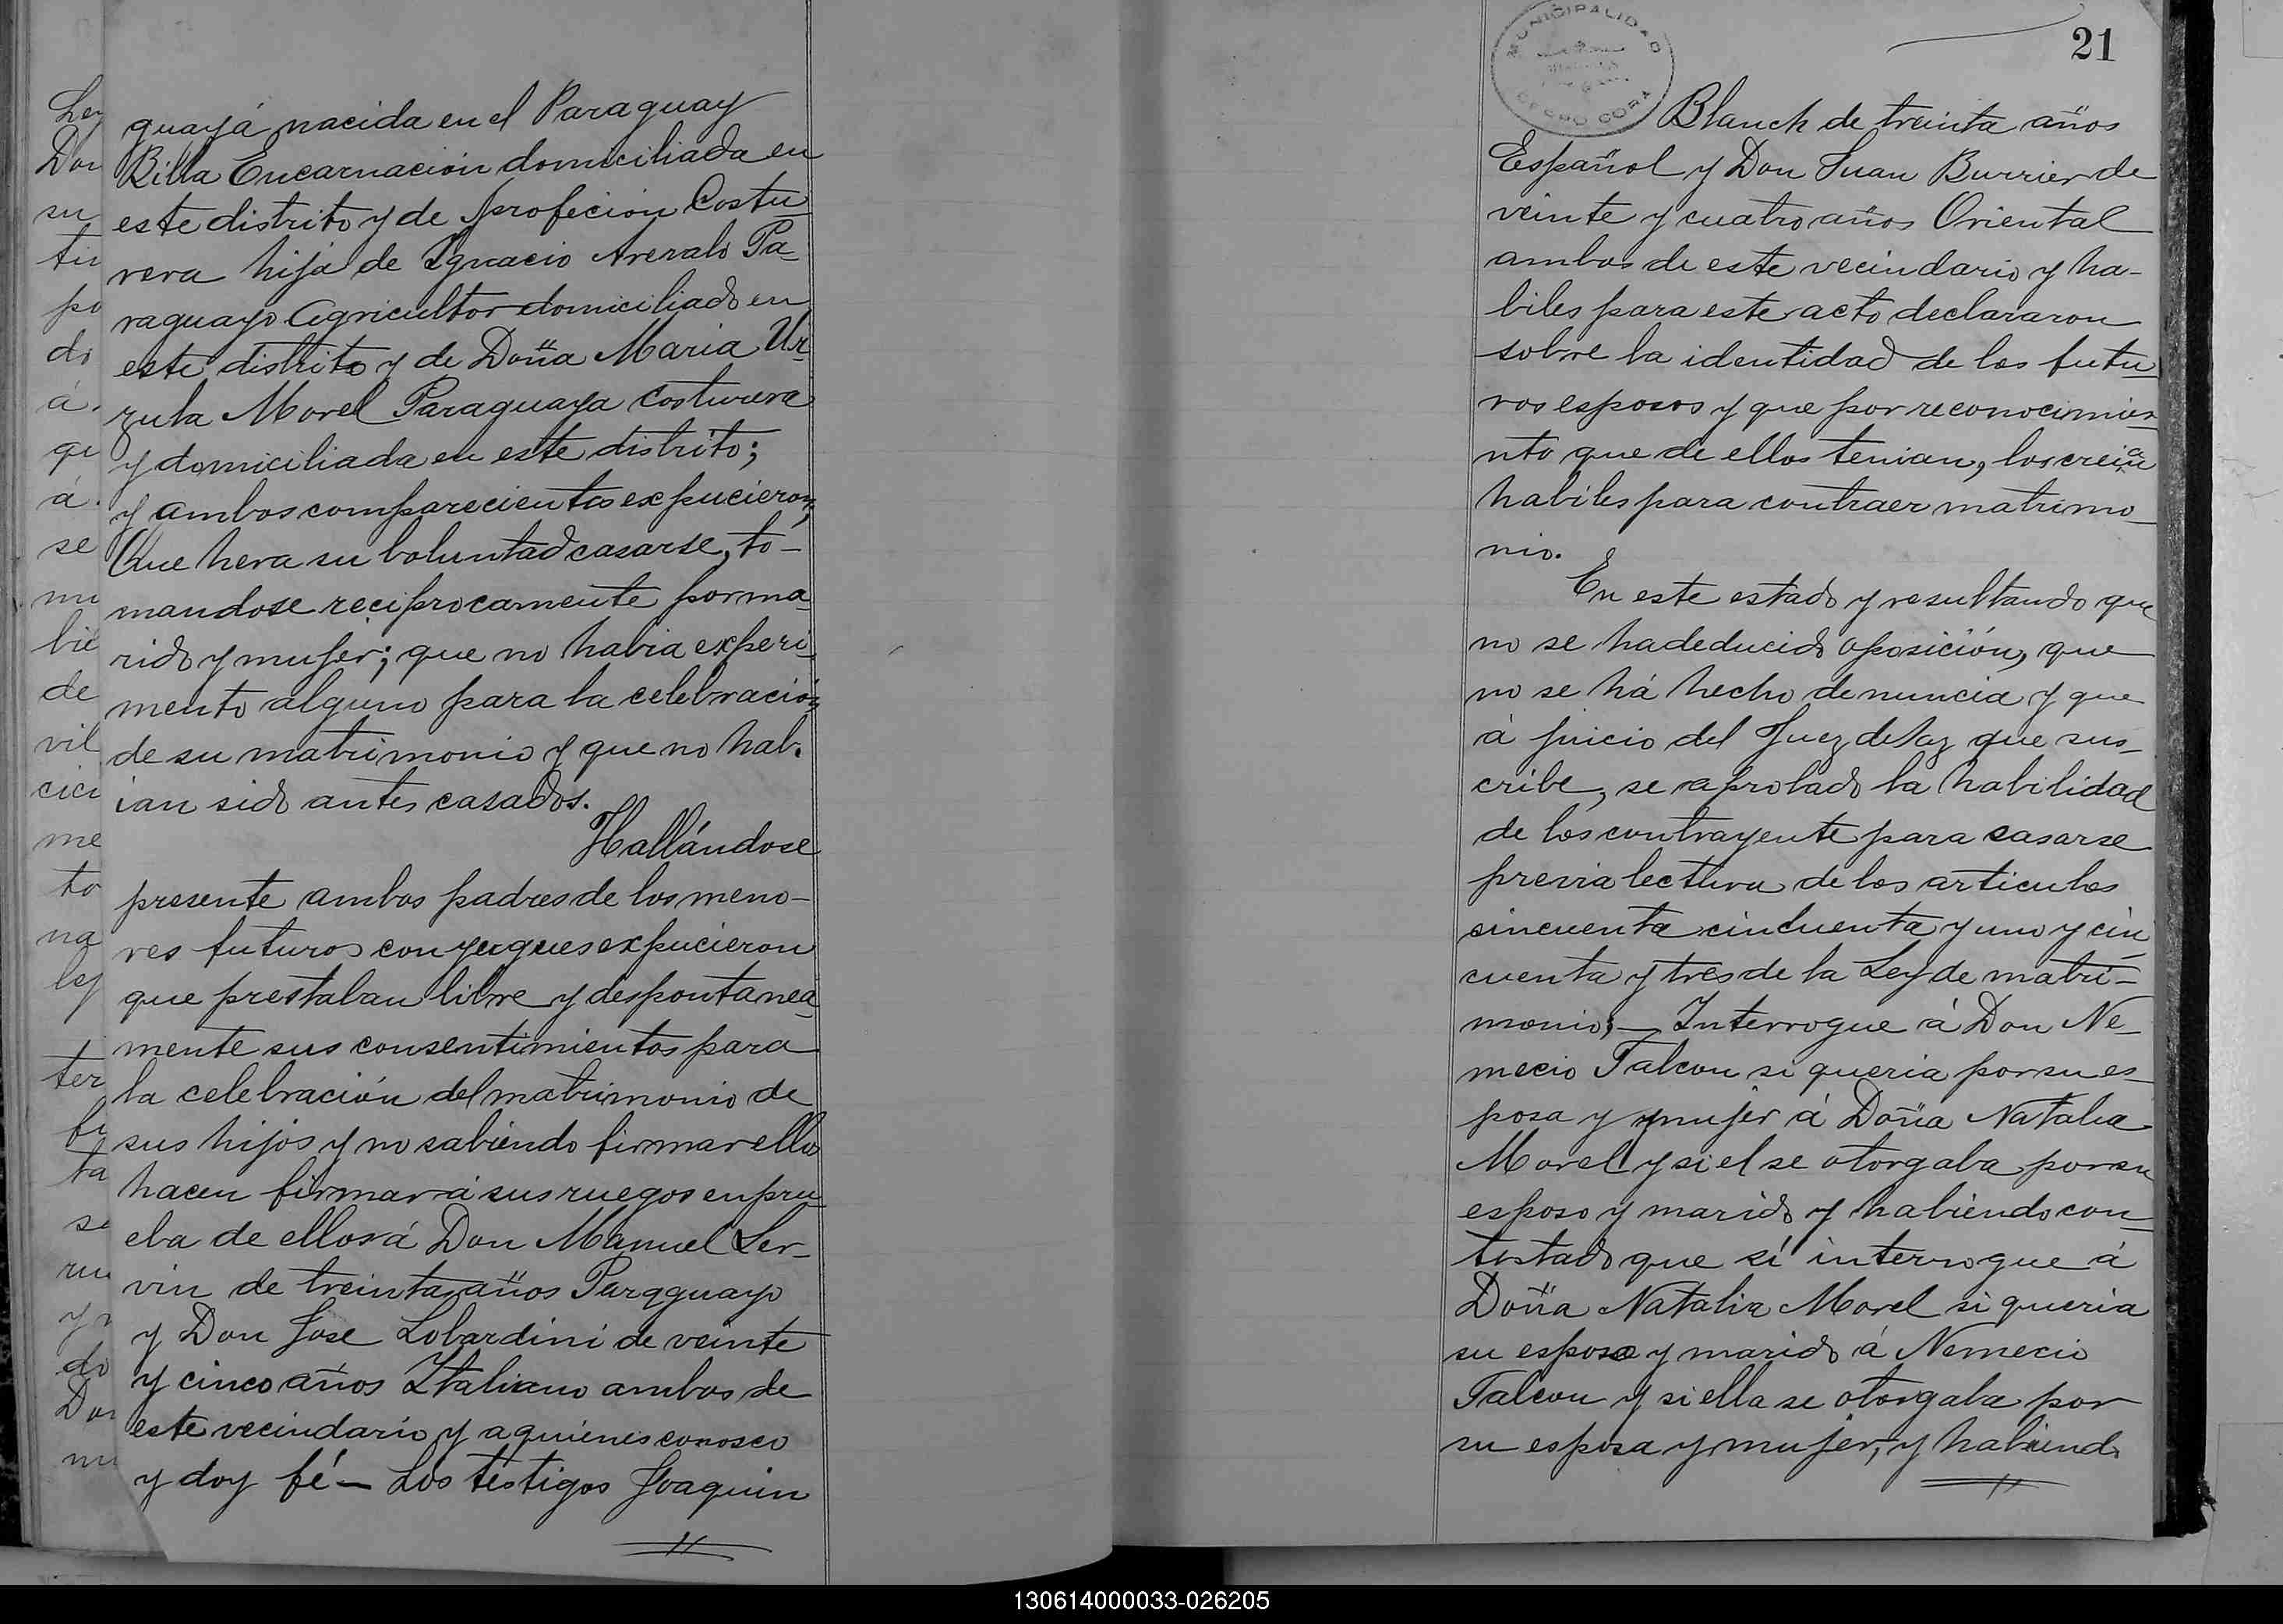 guaya nacida en el Paraguay
Billa Encarnación domiciliada en
este distrito y de profeción Costu
rera hija de Ignacio Arevalo Pa
raguayo Agricultor domiciliado en
este distrito y de Doña Maria Ur
zula Morel Paraguaya costurera
y domiciliada en este distrito;
y ambos comparecientes expucieron,
Que hera su boluntad casarse, to-
mandose reciprocamente por ma
rido y mujer; que no habia experi
mento alguno para la celebración
de su matrimonio y que no hab.
ian sido antes casados.
Hallándose
presente ambos padres de los meno-
res futuros conyugues expucieron
que prestaban libre y despontanea
mente sus consentimientos para
la celebración del matrimonio de
sus hijos y no sabiendo firmar ellos
hacen firmar á sus ruegos en pru
eba de ellos á Don Manuel Ser-
vin de treinta años Parqguayo
y Don Jose Lobardini de veinte
y cinco años Italiano ambos de
este vecindario y a quienes conosco
y doy fé - Los testigos Joaquin
Ley
Don
su
po
do
á
qu
á
se
mi
bie
de
vil
cici
me
to
na
ley
ter
ta
se
do
Don
MUNICIPALIDAD
CERRO CORA
21
Blanch de treinta años
Español y Don Juan Burrier de
veinte y cuatro años Oriental
ambos de este vecindario y ha-
biles para este acto declararon
sobre la identidad de los futu
ros esposos y que por reconocimien
nto que de ellos tenian, los creian
habiles para contraer matrimo
nio.
En este estado y resultando que
no se ha deducido oposición, que
no se há hecho denuncia y que
á juicio del Juez de Paz que sus-
cribe, se a probado la habilidad
de los contrayente para casarse
previa lectura de los articulos
cincuenta cincuenta y uno y cin
cuenta y tres de la Ley de matri-
monio; - Interrogue á Don Ne-
mecio Falcon si queria por su es-
posa y mujer á Doña Natalia
Morel y si el se otorgaba por su
esposo y marido y habiendo con
testado que sí interrogue á
Doña Natalia Morel si queria
su esposo y marido á Nemecio
Falcon y si ella se otorgaba por
su esposa y mujer, y habiendo
130614000033-026205